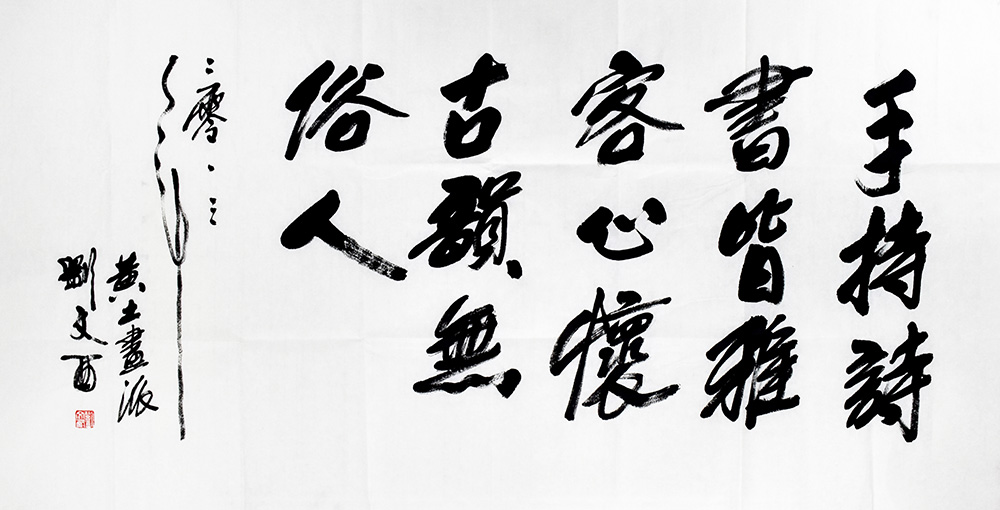 手持詩
書皆雅
客心懷
古韻無
俗人
二零一三
黄土畫派
劉文西